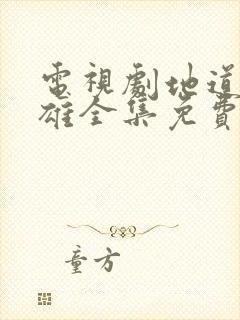 電視劇地道
雄全集免費
童方